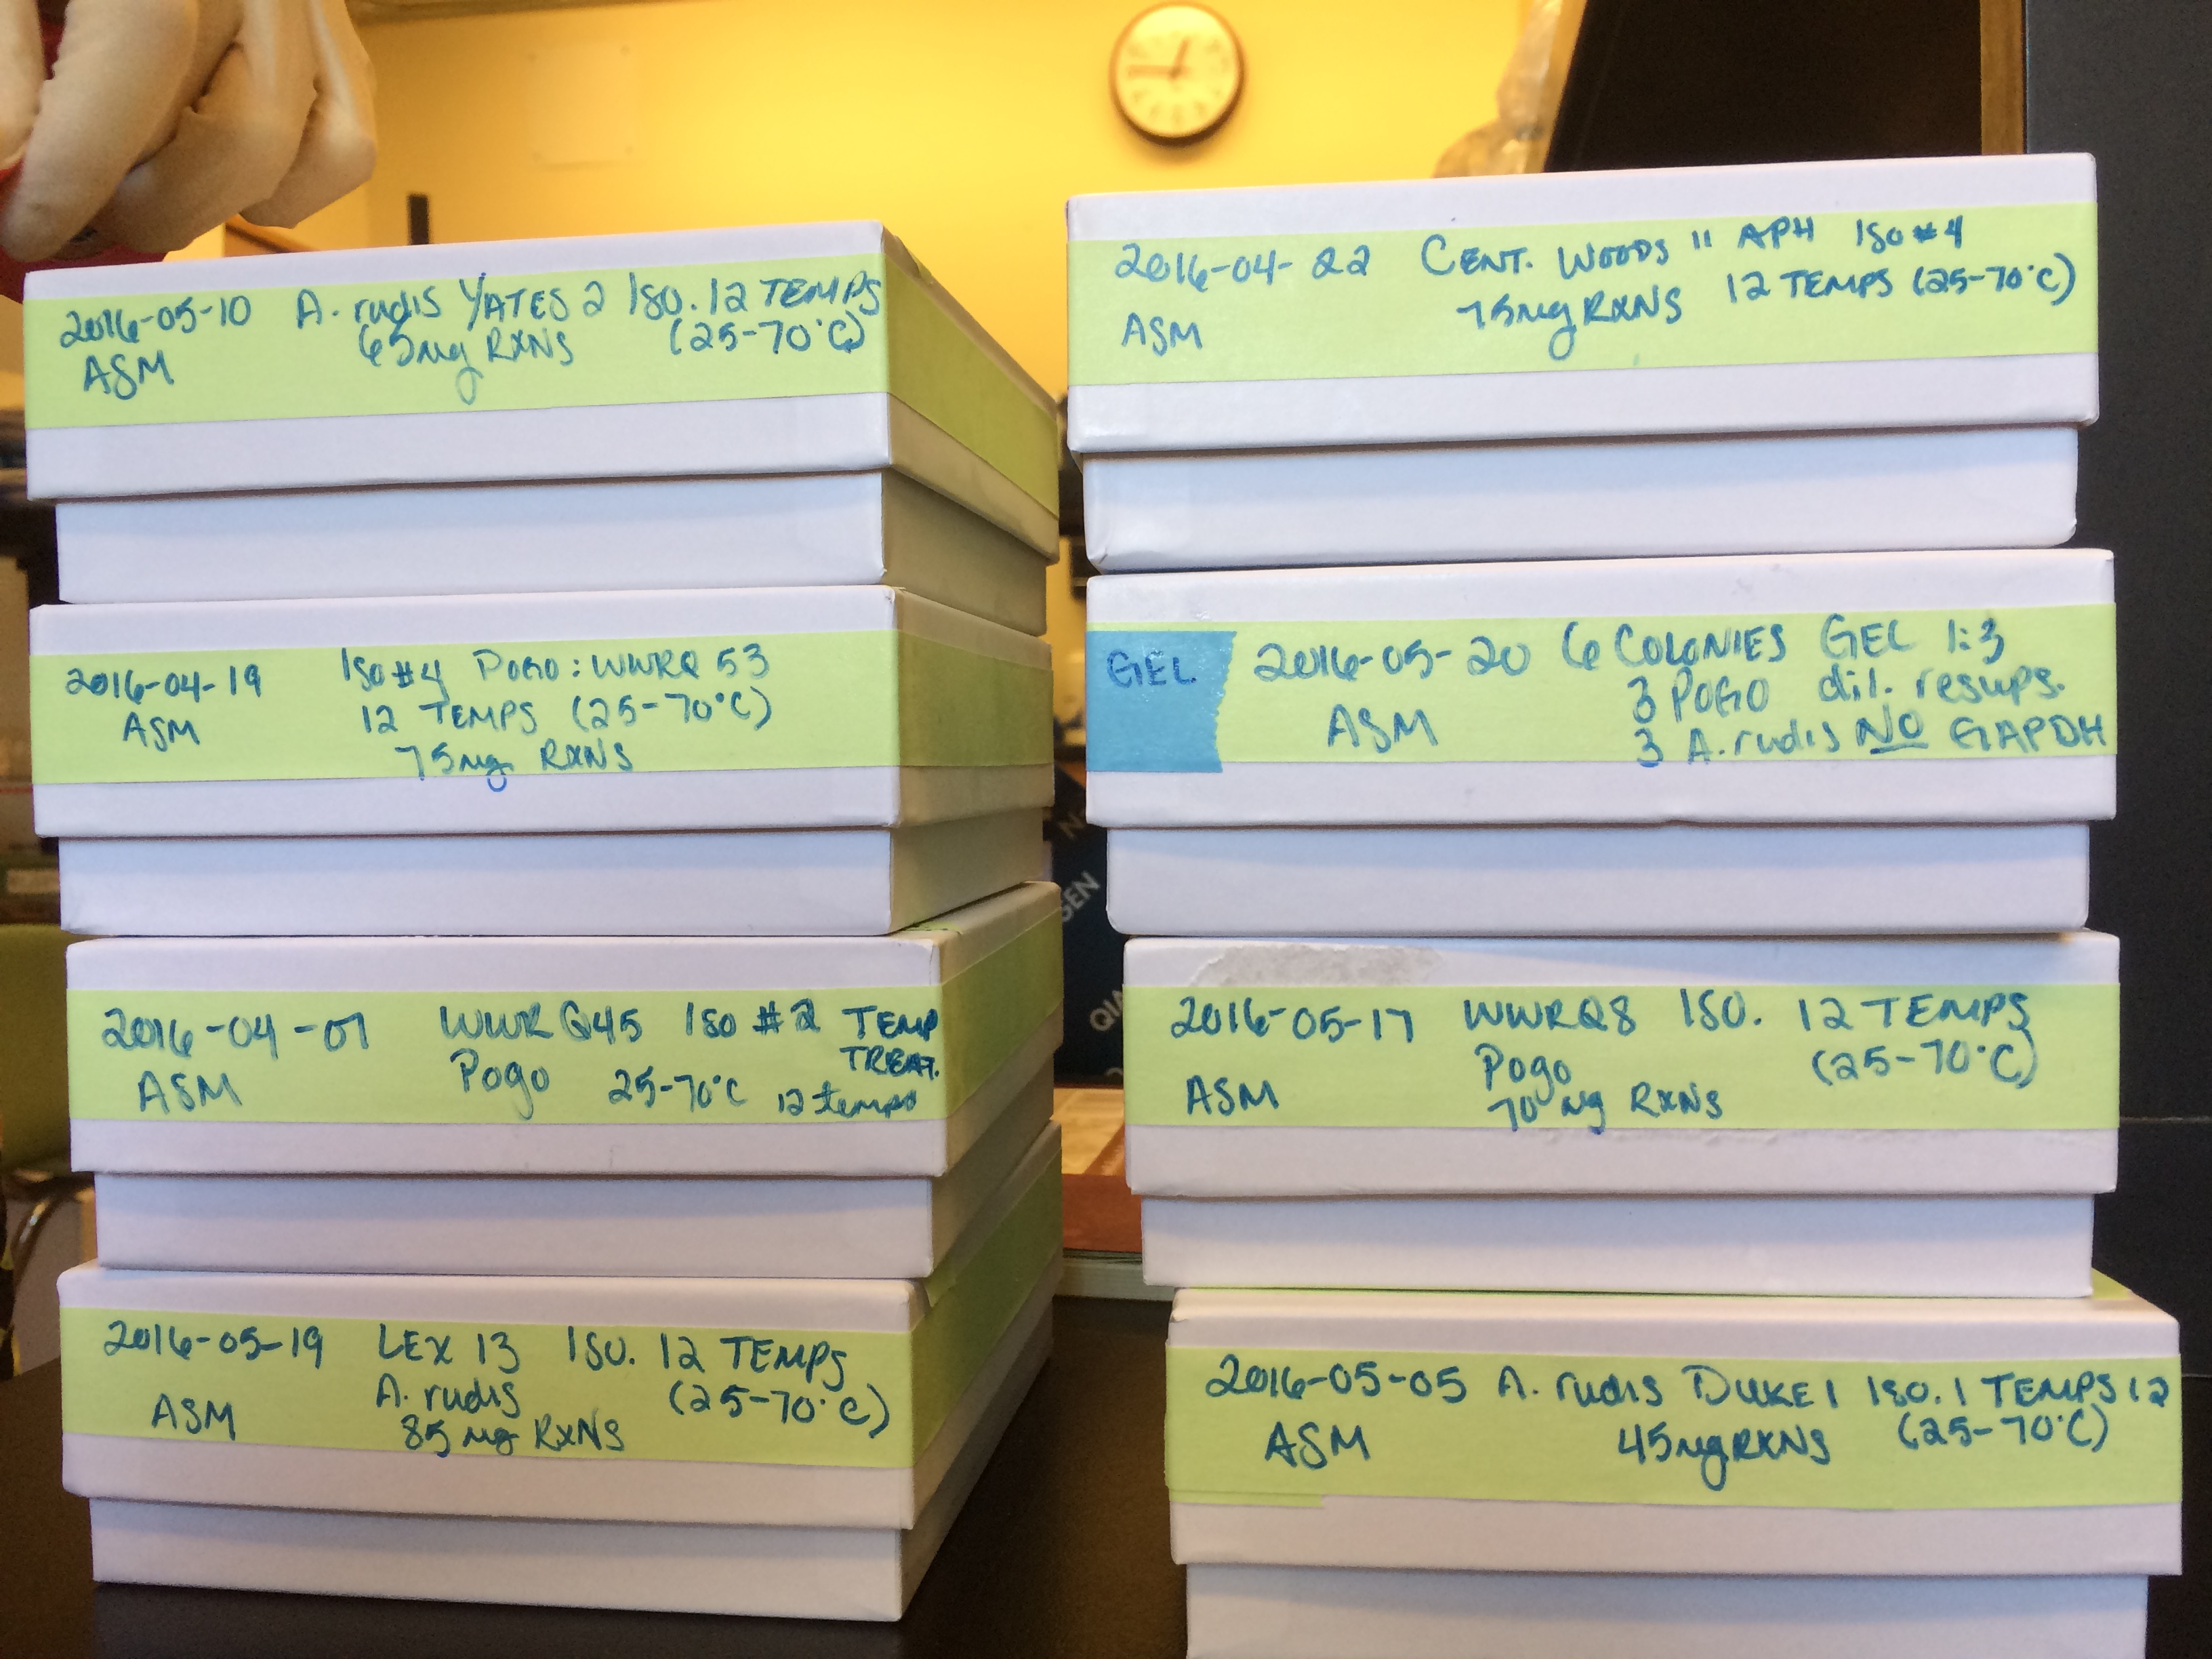 2016-05-10 A. rudis YATES 2 ISO. 12 TEMPS
ASM 65ug RXNS (25-70°C)
2016-04-19 ISO #4 POGO: WWRQ 53
ASM 12 TEMPS (25-70°C)
75ug RXNS
2016-04-07 WWRQ45 ISO #2 TEMP
TREAT.
ASM Pogo 25-70°C 12 temps
2016-05-19 LEX 13 ISO. 12 TEMPS
ASM A. rudis (25-70°C)
85 ug RXNS
2016-04-22 CENT. WOODS 11 APH ISO #4
ASM 75ug RXNS 12 TEMPS (25-70°C)
GEL 2016-05-20 6 COLONIES GEL 1:3
ASM 3 POGO dil. resups.
3 A. rudis NO GAPDH
2016-05-17 WWRQ8 ISO. 12 TEMPS
Pogo (25-70°C)
ASM 70 ug RXNS
2016-05-05 A. rudis DUKE 1 ISO. 1 TEMPS 12
ASM 45ug RXNS (25-70°C)
GEN
QIA